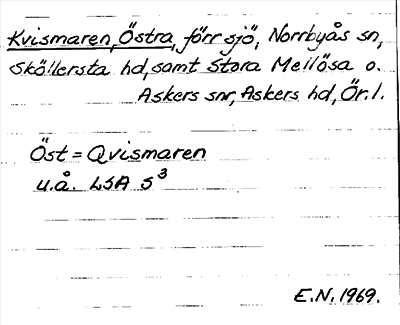 Kvismaren, Östra, förr sjö, Norrbyås sn,
Sköllersta hd, samt Stora Mellösa o.
Askers snr, Askers hd, Ör. l.
Öst = Qvismaren
u.å. LSA S³
E.N. 1969.